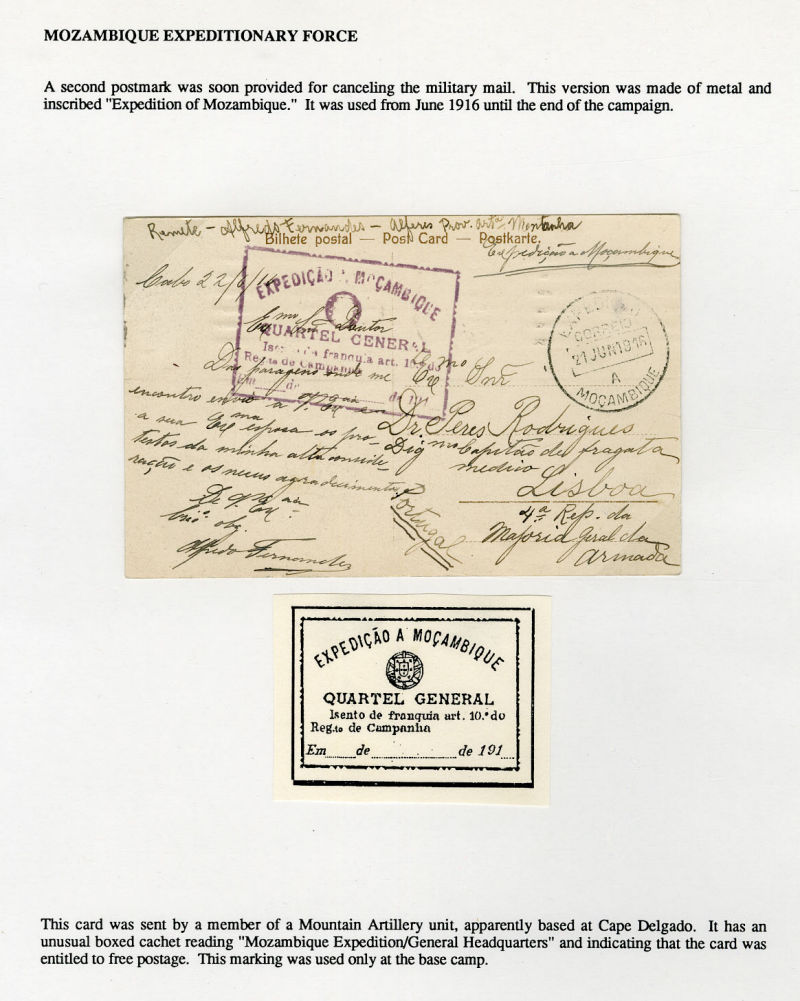 MOZAMBIQUE EXPEDITIONARY FORCE
A second postmark was soon provided for canceling the military mail. This version was made of metal and
inscribed "Expedition of Mozambique." It was used from June 1916 until the end of the campaign.
Remete - Alfredo Fernandes - Alferes Prov. Artª Montanha
Bilhete postal — Post Card — Postkarte.
Expedição a Moçambique
Cabo 22/6/16
EXPEDIÇÃO A MOÇAMBIQUE
QUARTEL GENERAL
Isento de franquia art. 10.º do
Reg.to de Campanha
Em de de 191
EXPEDIÇÃO
CORREIO
21 JUN 1916
A
MOÇAMBIQUE
Exmo Snr Doutor
me
encontro envio a V. Exª
a sua Exma esposa os pro-
testos da minha alta conside-
ração e os meus agradecimentos
De V. Exª
obg.
Alfredo Fernandes
Exmo Snr
Dr. Peres Rodrigues
Digmo Capitão de fragata
medico
Lisboa
4ª Rep. da
Majoria Geral da
Armada
Portugal
EXPEDIÇÃO A MOÇAMBIQUE
QUARTEL GENERAL
Isento de franquia art. 10.º do
Reg.to de Campanha
Em de de 191
This card was sent by a member of a Mountain Artillery unit, apparently based at Cape Delgado. It has an
unusual boxed cachet reading "Mozambique Expedition/General Headquarters" and indicating that the card was
entitled to free postage. This marking was used only at the base camp.